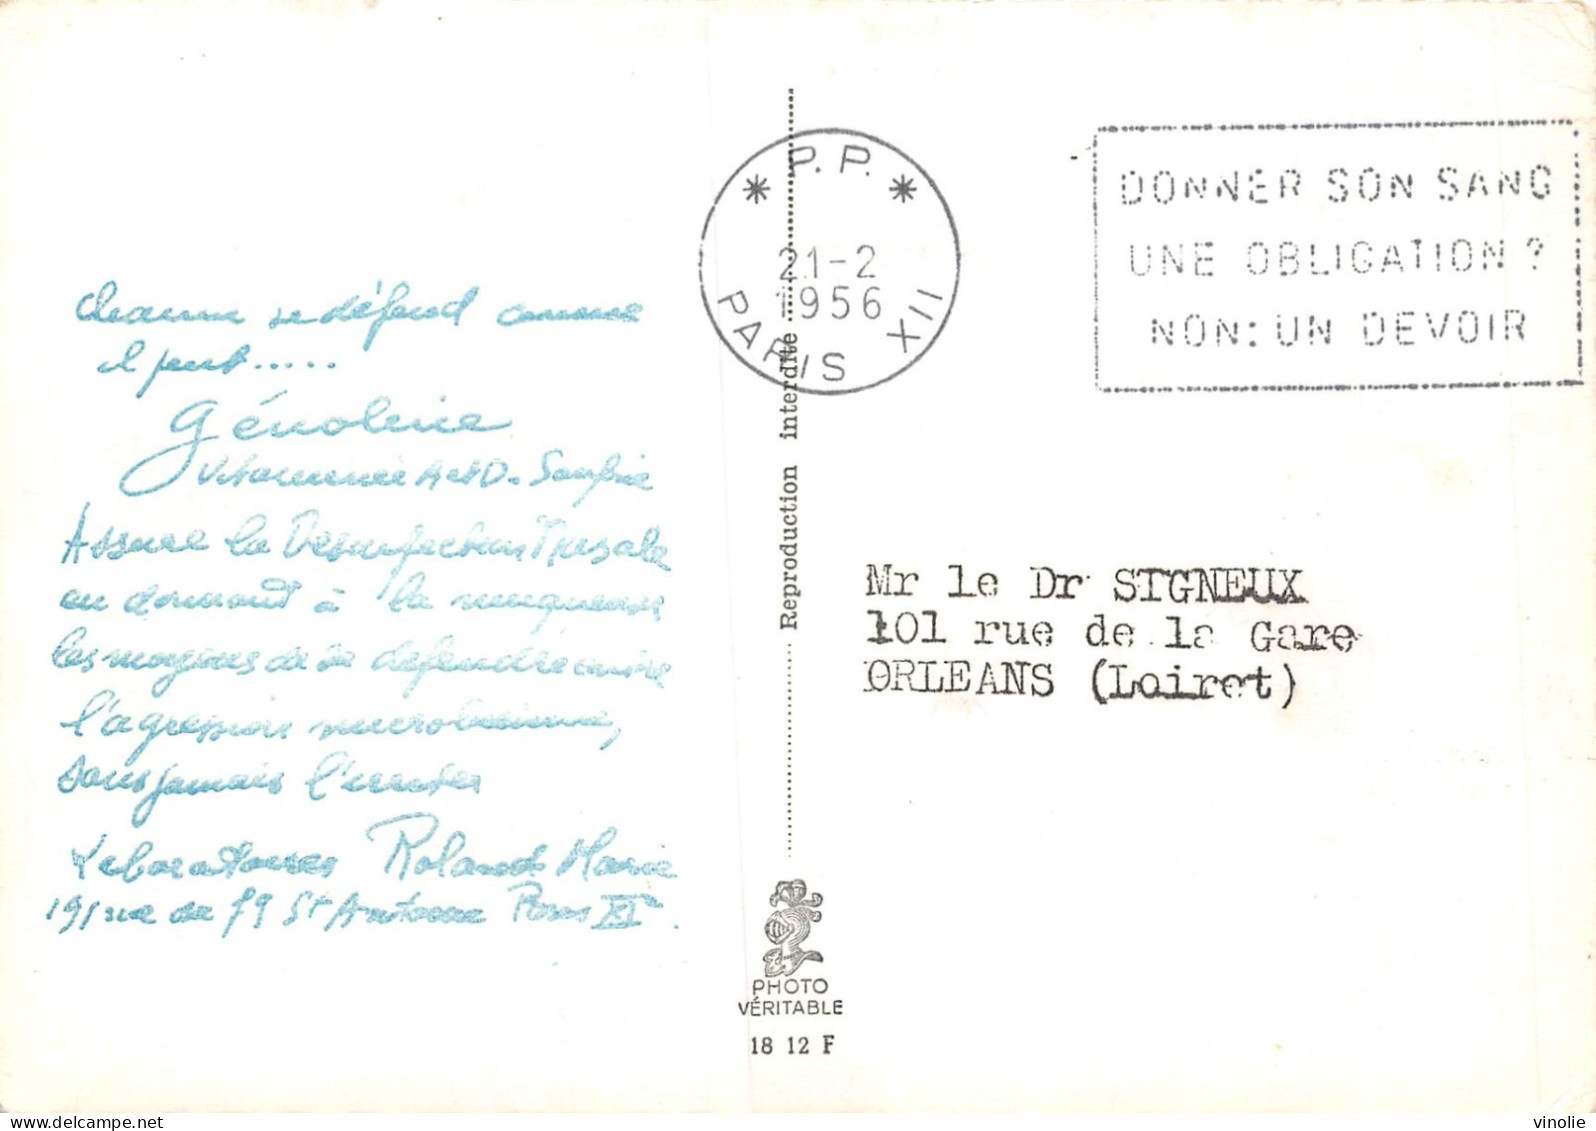 chacun se défend comme
il peut.....
Génoleine
Vitaminée A et D. Soufrée
Assure la Desinfection Nasale
en donnant à la muqueuse
les moyens de se defendre contre
l'agression microbienne,
sans jamais l'irriter
Laboratoires Roland Marie
191 rue du Fg St Antoine Paris XI
Reproduction interdite
* P.P. *
21-2
1956
PARIS XII
DONNER SON SANG
UNE OBLIGATION ?
NON: UN DEVOIR
Mr le Dr SIGNEUX
101 rue de la Gare
ORLEANS (Loiret)
PHOTO
VÉRITABLE
18 12 F
vinolie